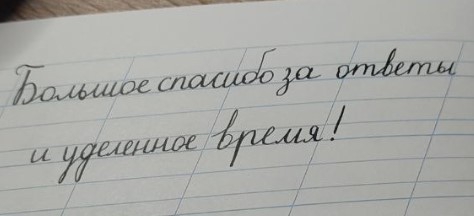 Большое спасибо за ответы
и уделенное время!